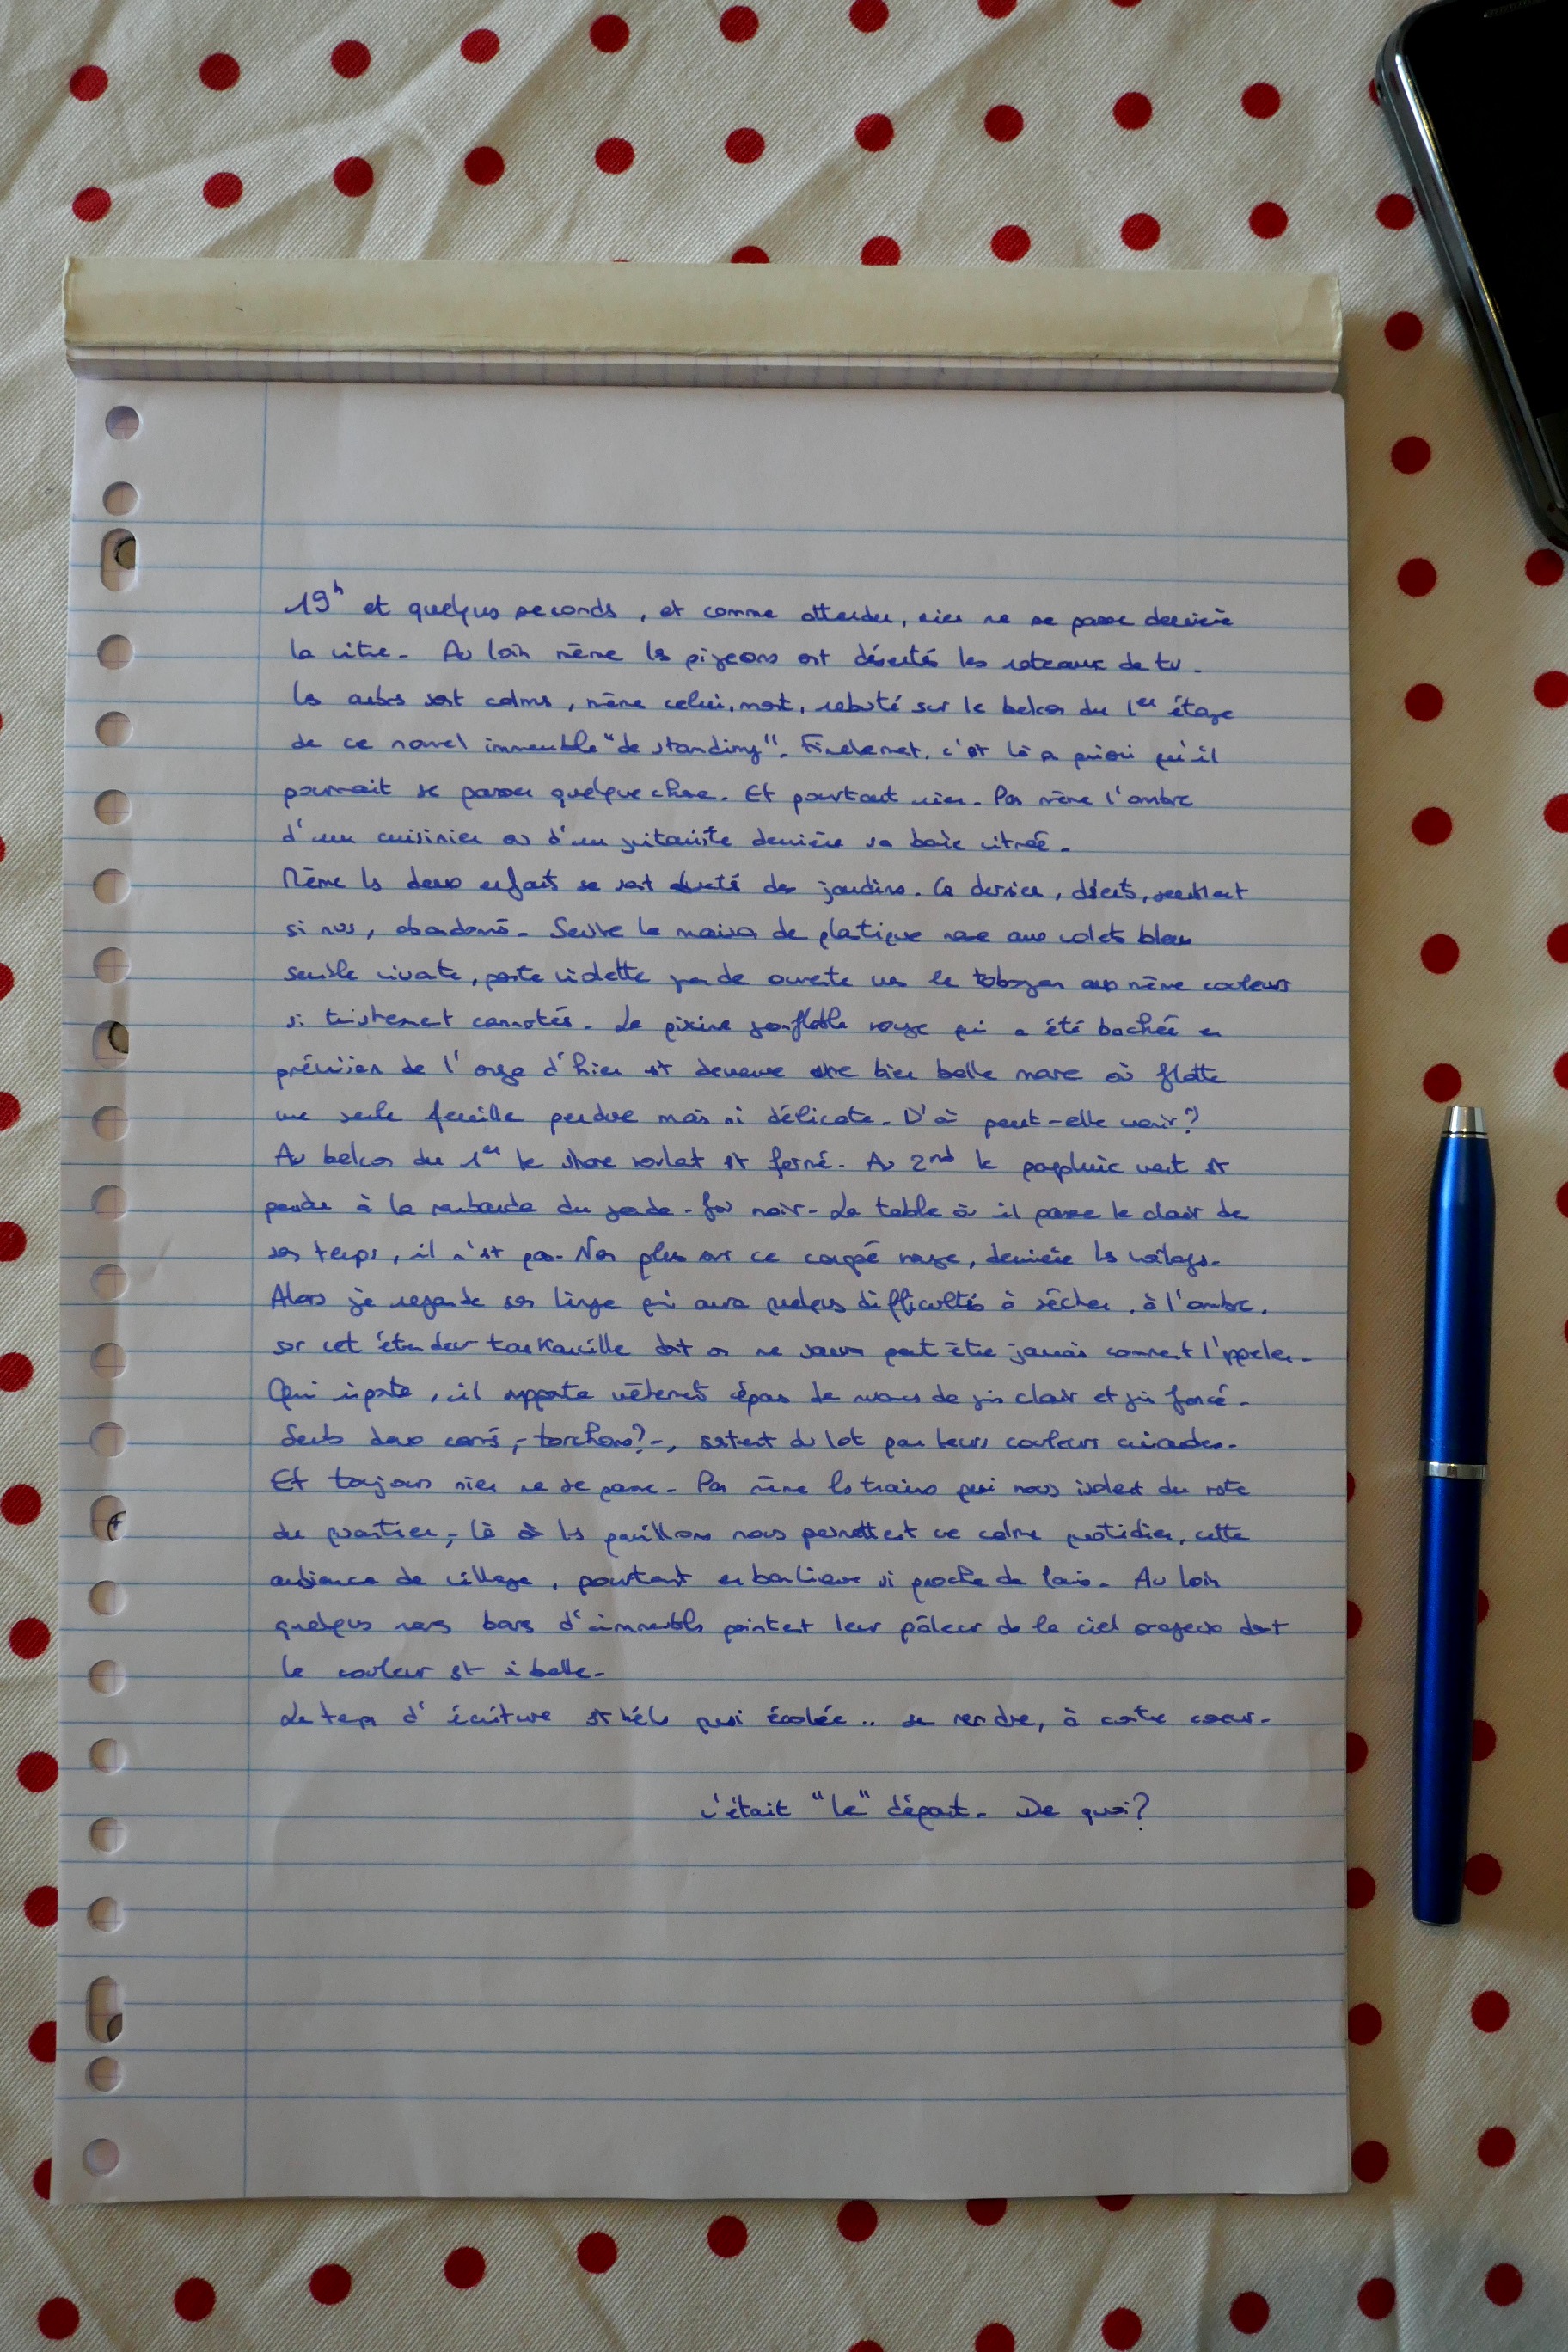 19h et quelques secondes, et comme attendu, rien ne se passe derrière
la vitre. Au loin même les pigeons ont déserté les roteaux de tv.
Les arbres sont calmes, même celui, mort, rebouté sur le balcon du 1er étage
de ce nouvel immeuble "de standing". Finalement, c'est là a priori qu'il
pourrait se passer quelque chose. Et pourtant rien. Pas même l'ombre
d'un cuisinier ou d'un guitariste derrière sa baie vitrée.
Même les deux enfants se sont des jardins. Ce dernier, déserts, semblent
si nus, abandonnés. Seule la maison de plastique rose aux volets bleus
semble vivante, porte violette grande ouverte vers le tobogan aux même couleurs
si tristement connotés. La piscine gonflable rouge qui a été bachée en
prévision de l'orage d'hier est devenue une bien belle mare où flotte
une seule feuille perdue mais si délicate. D'où peut-elle venir?
Au balcon du 1er le store roulant est fermé. Au 2nd le parapluie vert est
pendu à la rambarde du garde-fou noir. La table où il passe le clair de
son temps, il n'est pas. Non plus sur ce canapé rouge, derrière les voilages.
Alors je regarde son linge qui aura quelques difficultés à sécher, à l'ombre,
sur cet étendoir tancarville dont on ne saura peut être jamais comment l'appeler.
Qu'importe, il supporte vêtements épars de nuances de gris clair et gris foncé.
Seuls deux carrés, - torchons? -, sortent du lot par leurs couleurs criardes.
Et toujours rien ne se passe. Pas même les trains qui nous isolent du reste
du quartier, là où les pavillons nous permettent ce calme quotidien, cette
ambiance de village, pourtant en banlieue si proche de Paris. Au loin
quelques rares bares d'immeubles pointent leur pâleur de le ciel orageux dont
la couleur est si belle.
Le temps d'écriture est hélas quasi écoulée.. se rendre, à contre coeur.
C'était "le" départ. De quoi?